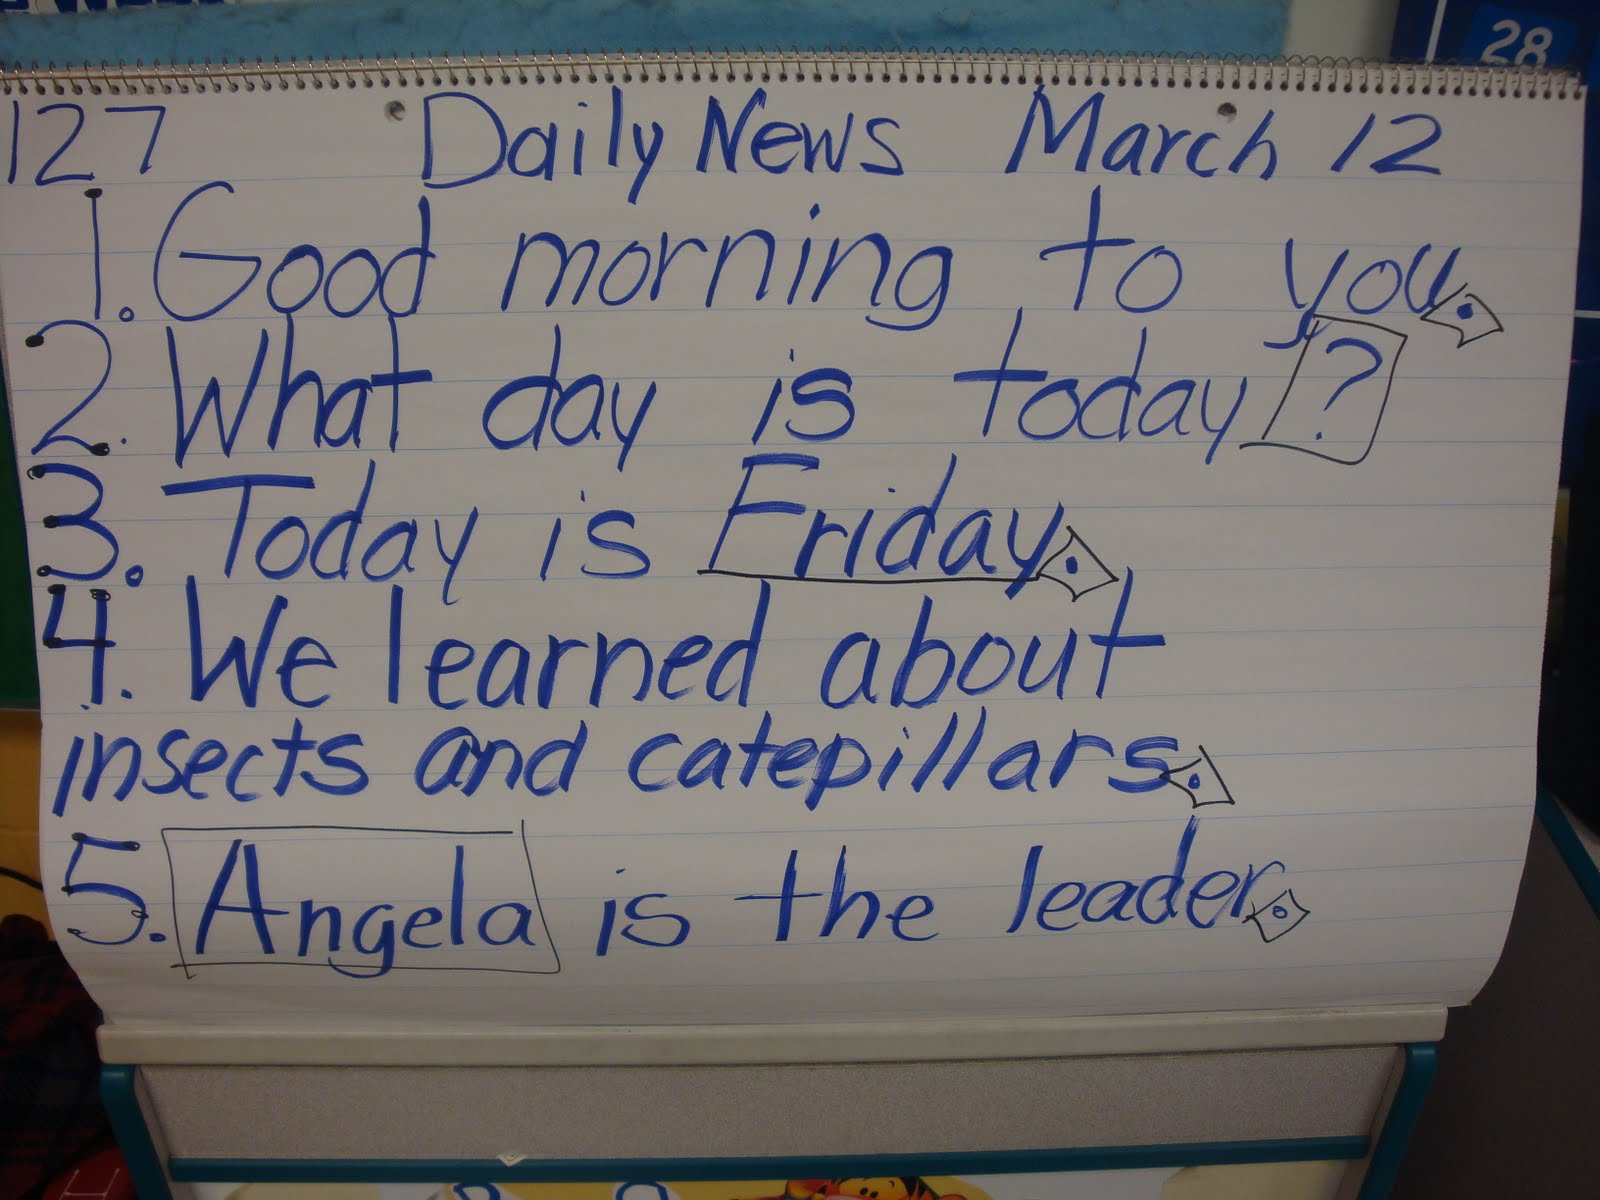 28
127 Daily News March 12
1. Good morning to you.
2. What day is today?
3. Today is Friday.
4. We learned about
insects and catepillars.
5. Angela is the leader.